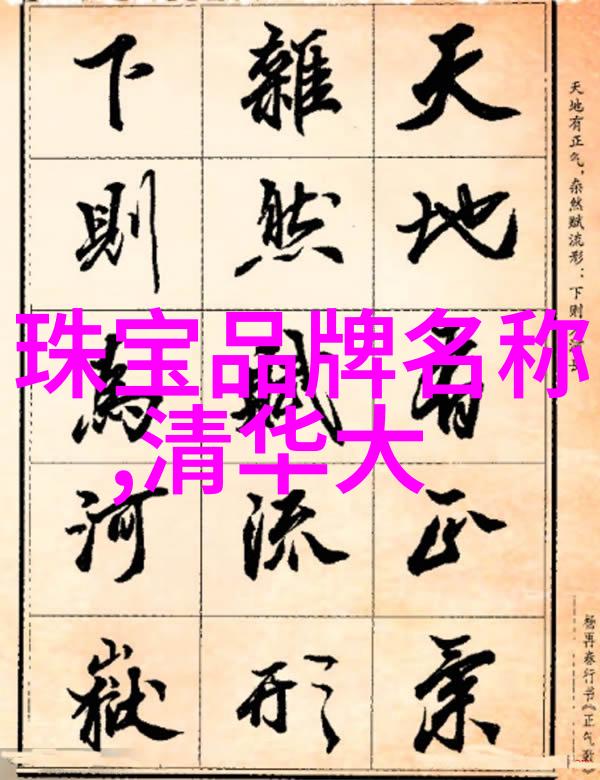 珠宝品牌名称
,清华大
天地有正气，杂然赋流形；下则河岳
天地有正氣
雜然賦流形
下則為河嶽
杨再春行书《正气歌》